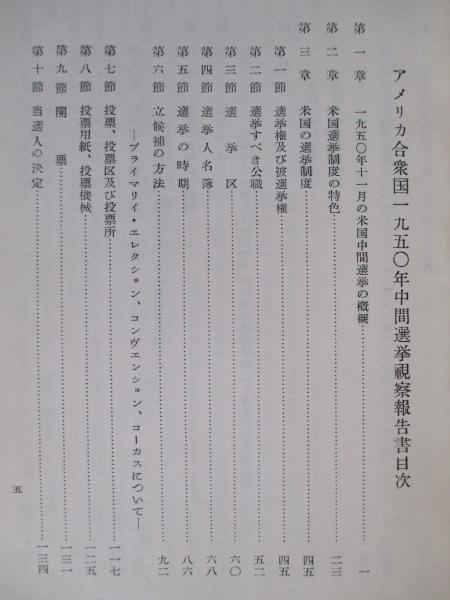 アメリカ合衆国一九五〇年中間選挙視察報告書目次
第一章 一九五〇年十一月の米国中間選挙の概観……一
第二章 米国選挙制度の特色……二三
第三章 米国の選挙制度……四五
第一節 選挙権及び被選挙権……四五
第二節 選挙すべき公職……五二
第三節 選挙区……六〇
第四節 選挙人名簿……六八
第五節 選挙の時期……八六
第六節 立候補の方法……九二
―プライマリイ・エレクション、コンヴエンション、コーカスについて―
第七節 投票、投票区及び投票所……一一七
第八節 投票用紙、投票機械……一二五
第九節 開票……一三一
第十節 当選人の決定……一三四
五